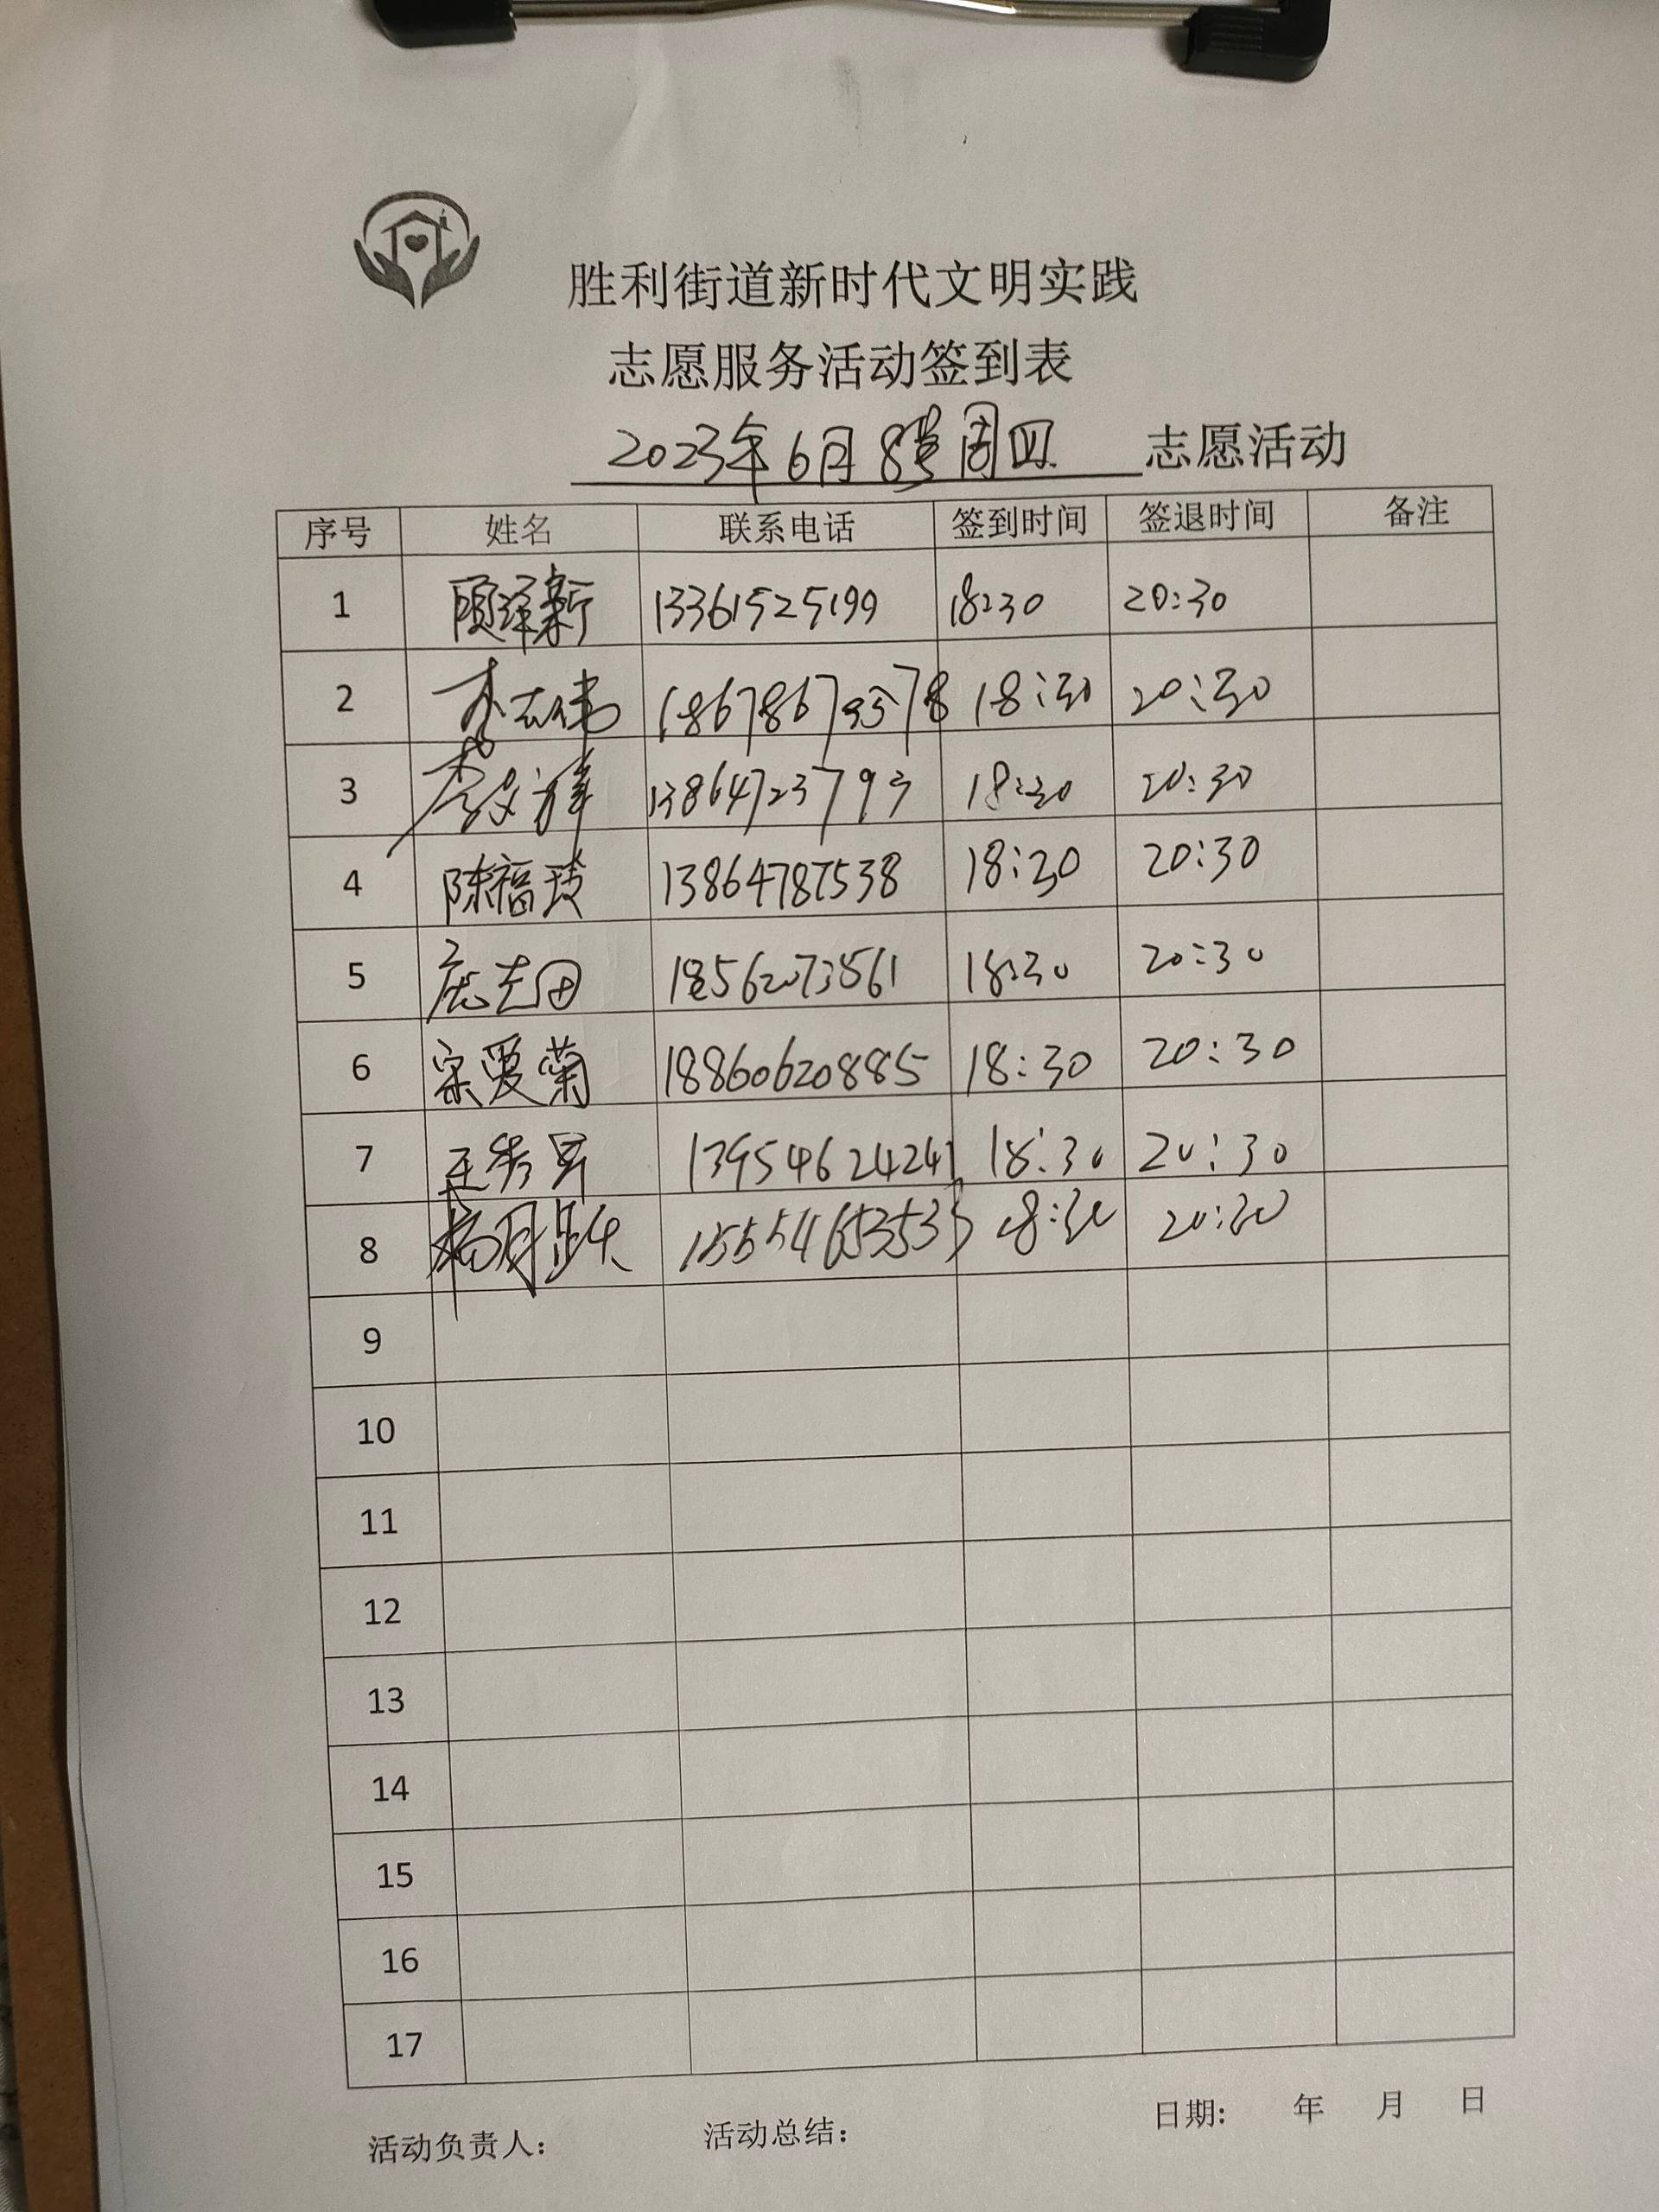 胜利街道新时代文明实践
志愿服务活动签到表
2023年6月8号周四 志愿活动
序号 姓名 联系电话 签到时间 签退时间 备注
1 顾泽新 13361525199 18:30 20:30
2 李志伟 18:30 20:30
3 13864723793 18:30 20:30
4 陈福玲 13864787538 18:30 20:30
5 18562073561 18:30 20:30
6 宋爱菊 18860620885 18:30 20:30
7 13954624241 18:30 20:30
8 杨月 15554653533 18:30 20:30
9
10
11
12
13
14
15
16
17
活动负责人： 活动总结： 日期: 年 月 日